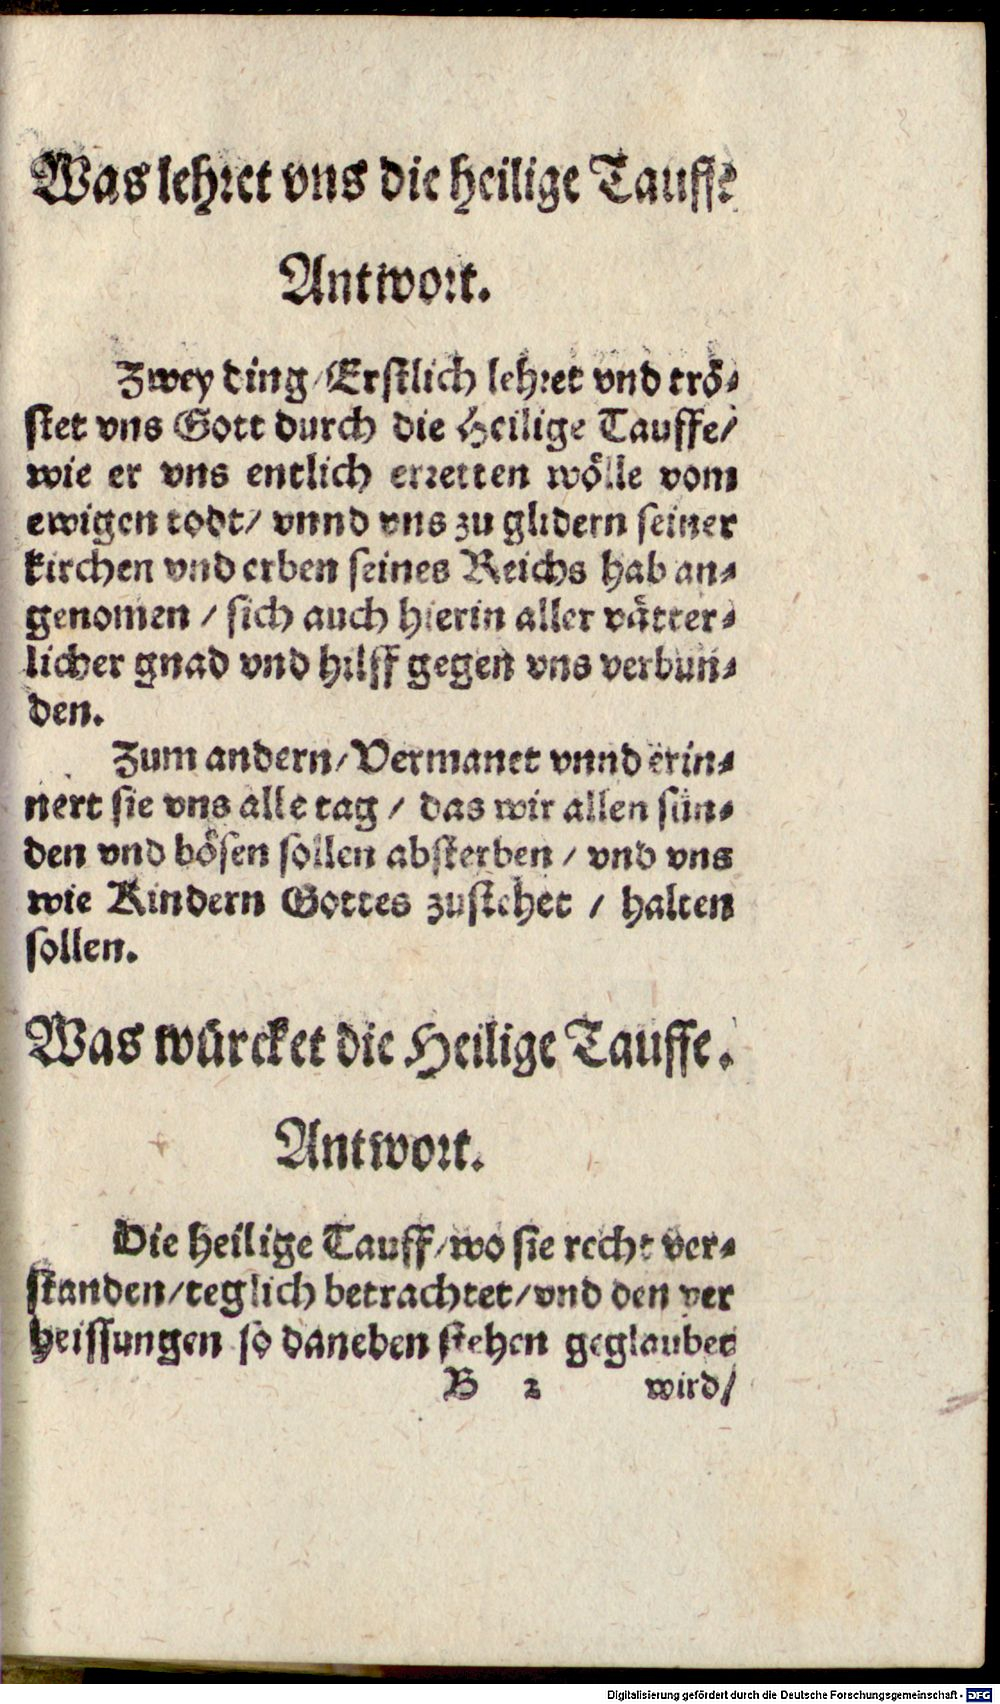 Was lehret vns die heilige Tauffe
Antwort.
Zwey ding / Erstlich lehret vnd trö-
stet vns Gott durch die Heilige Tauffe /
wie er vns entlich erretten wölle vom
ewigen todt / vnnd vns zu glidern seiner
kirchen vnd erben seines Reichs hab an-
genomen / sich auch hierin aller vätter-
licher gnad vnd hilff gegen vns verbun-
den.
Zum andern / Vermanet vnnd erin-
nert sie vns alle tag / das wir allen sün-
den vnd bösen sollen absterben / vnd vns
wie Kindern Gottes zustehet / halten
sollen.
Was würcket die Heilige Tauffe.
Antwort.
Die heilige Tauff / wo sie recht ver-
standen / teglich betrachtet / vnd den ver
heissungen so daneben stehen geglaubet
B 2 wird /
Digitalisierung gefördert durch die Deutsche Forschungsgemeinschaft - DFG